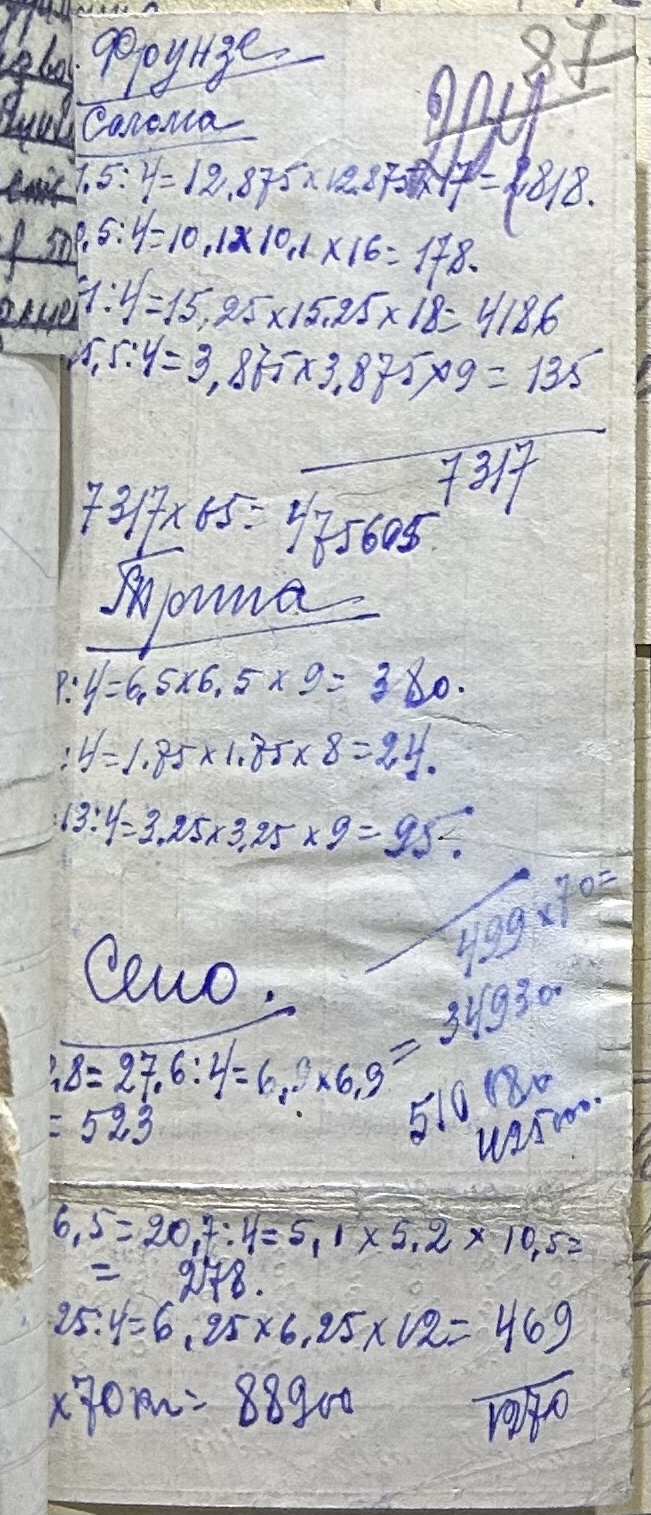 Фрунзе
87
Солома
,5:4=12,875×12,875×17=2818.
,5:4=10,1×10,1×16=178.
1:4=15,25×15,25×18=4186
5,5:4=3,875×3,875×9=135
7317
7317×65=475605
Трита
:4=6,5×6,5×9=380.
:4=1.75×1.75×8=24.
13:4=3,25×3,25×9=95.
499×70=
34930
Сено.
,8=27,6:4=6,9×6,9=
=523
510
6,5=20,7:4=5,1×5,2×10,5=
=278.
25:4=6,25×6,25×12=469
1270
×70кг=88900